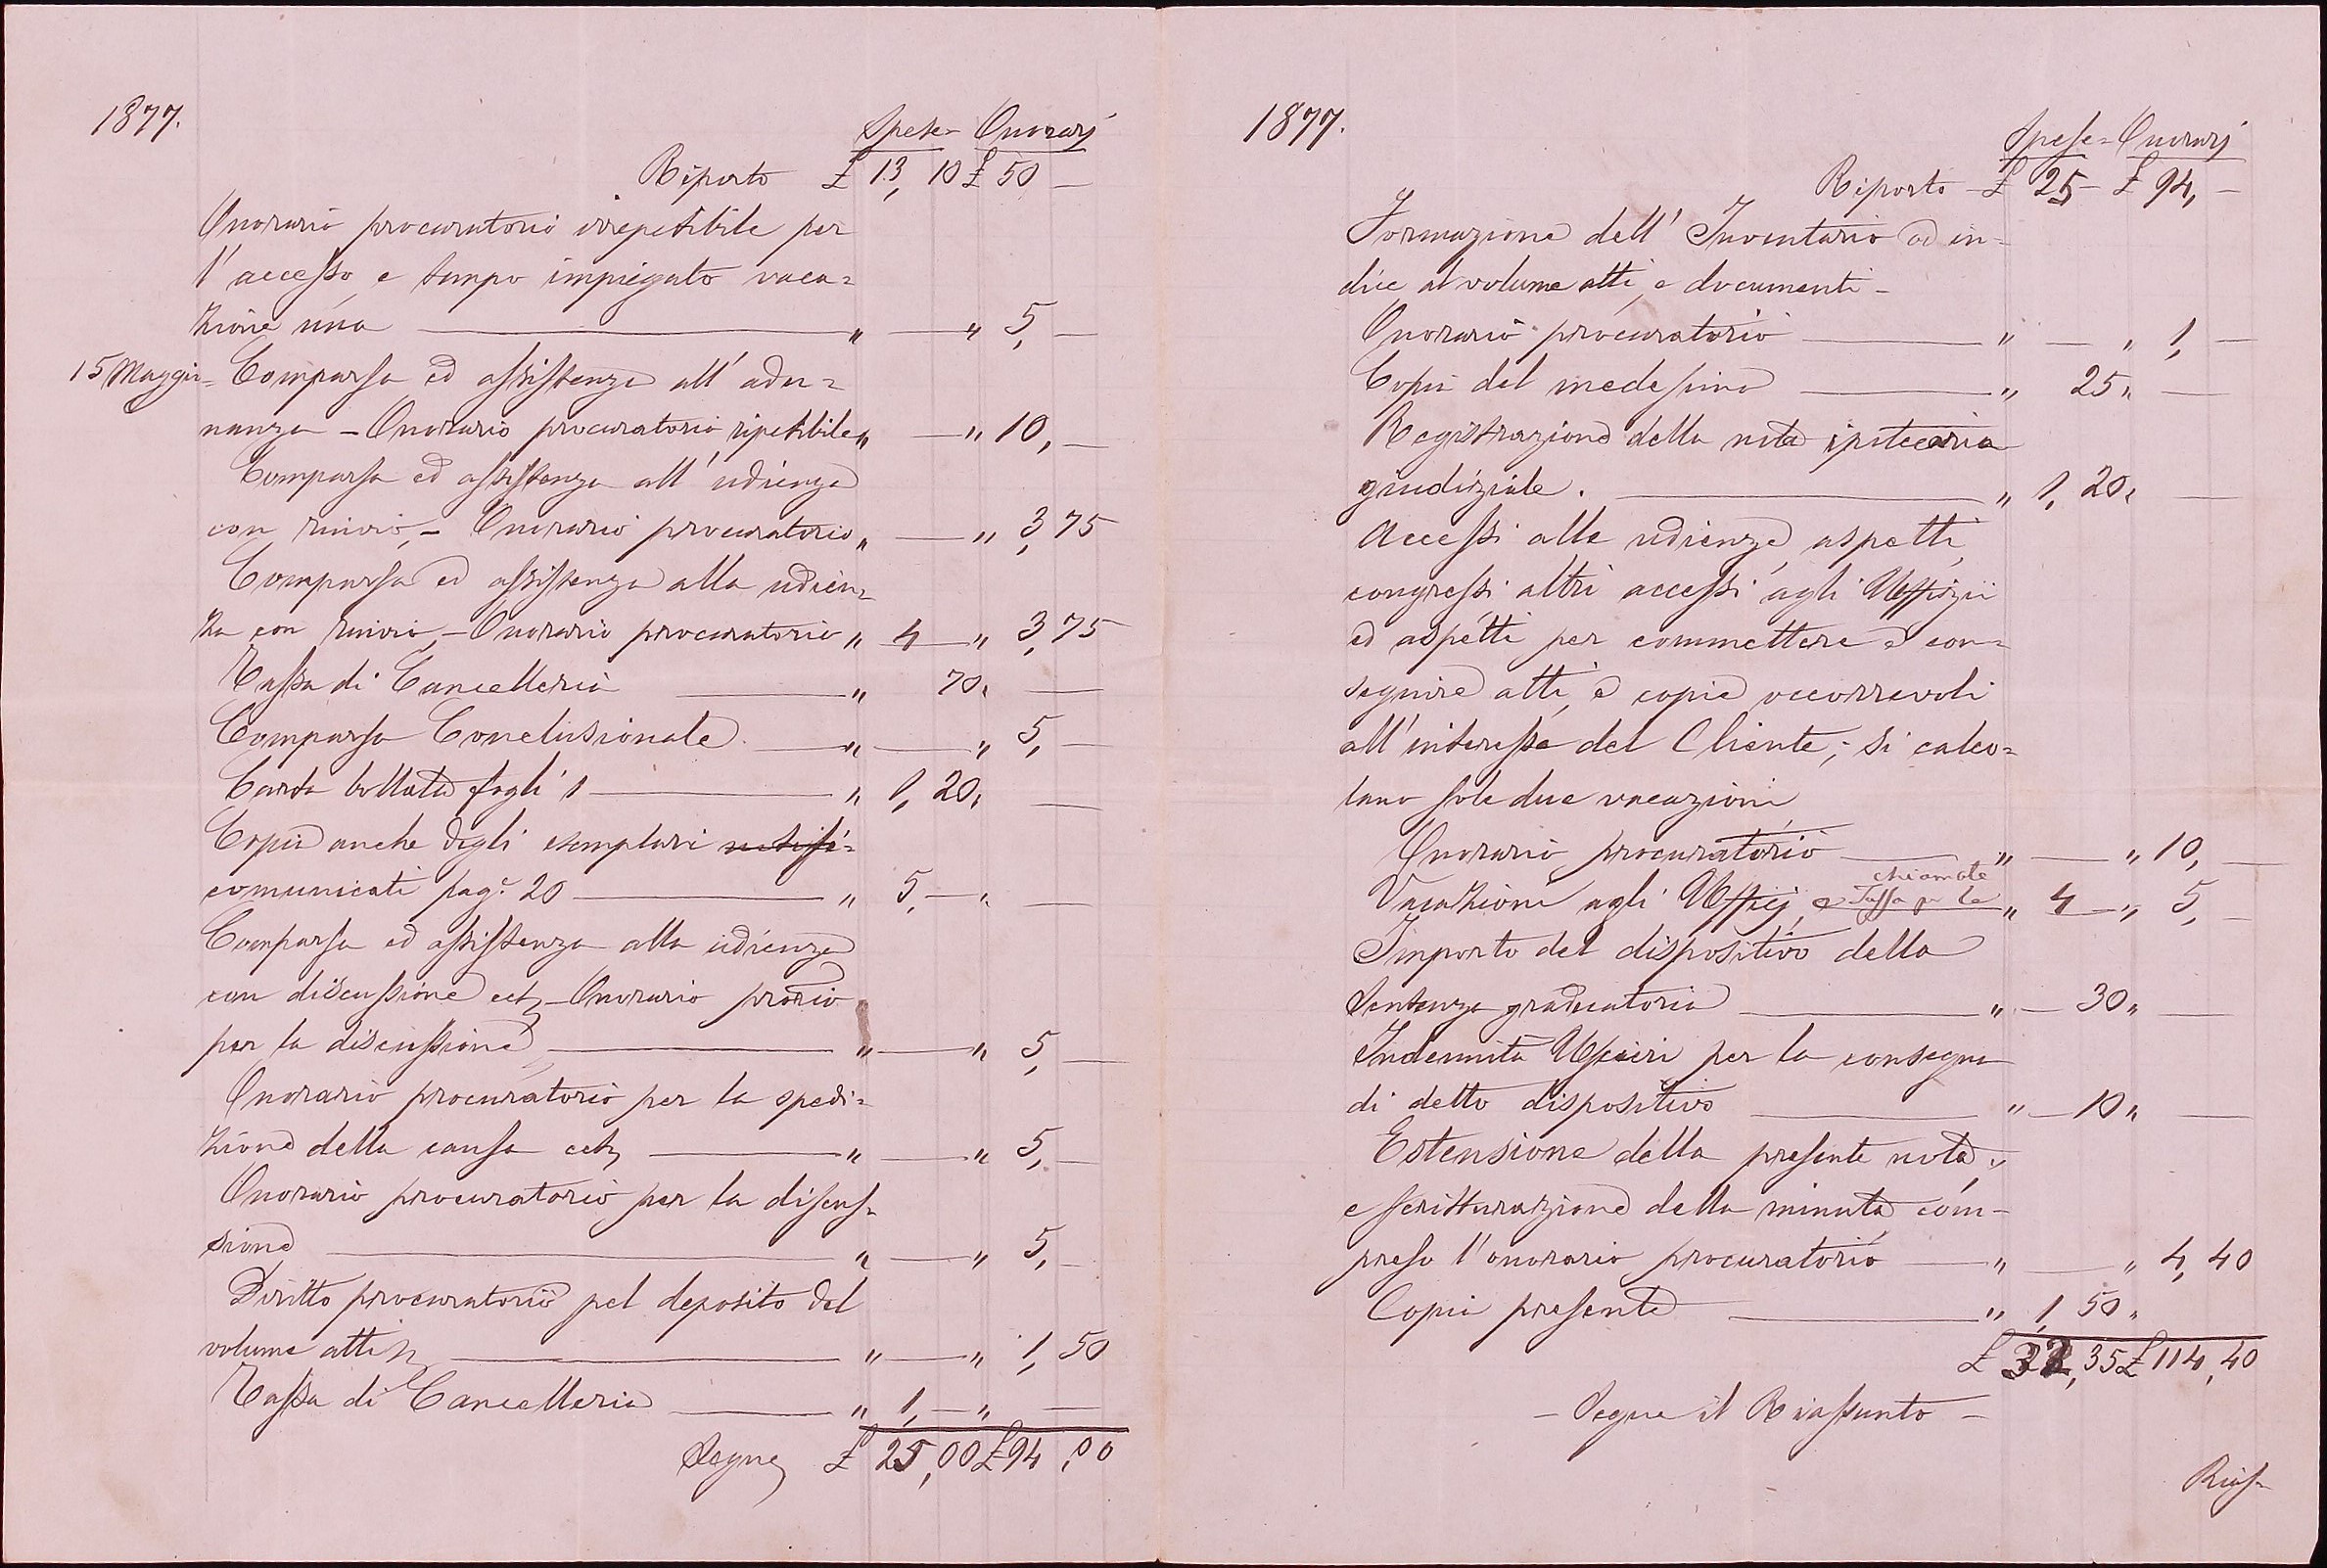 1877.
Spese - Onorarj
Riporto £ 13, 10 £ 50 —
Onorario procuratorio irrepetibile per
l'accesso, e tempo impiegato vaca=
zione una — " — " 5, —
15 Maggio = Comparsa ed assistenza all' adu=
nanza - Onorario procuratorio ripetibile " — " 10, —
Comparsa ed assistenza all' udienza
con rinvio, - Onorario procuratorio " — " 3, 75
Comparsa ed assistenza alla udien=
za con rinvio, - Onorario procuratorio " 4 — " 3, 75
Tassa di Cancelleria — " 70 " —
Comparsa Conclusionale — " — " 5, —
Carta bollata fogli 1 — " 1, 20 " —
Copia anche degli esemplari
comunicati pag.e 20 — " 5, — " —
Comparsa ed assistenza alla udienza
con discussione ect, - Onorario pro.rio
per la discussione — " — " 5, —
Onorario procuratorio per la spedi=
zione della causa ect, — " — " 5, —
Onorario procuratorio per la discus=
sione — " — " 5, —
Diritto procuratorio pel deposito del
volume atti — " — " 1, 50
Tassa di Cancelleria — " 1, — " —
Segue £ 25, 00 £ 94, 00
1877.
Spese - Onorarj
Riporto - £ 25 - £ 94, —
Formazione dell' Inventario od in=
dice al volume atti, e documenti -
Onorario procuratorio — " — " 1, —
Copia del medesimo — " 25 " —
Registrazione della nota ipotecaria
giudiziale. — " 1, 20 " —
Accessi alle udienze, aspetti,
congressi altri accessi agli Uffizii
ed aspetti per commettere e con=
seguire atti, e copie occorrevoli
all' interesse del Cliente; si calco=
lano sole due vacazioni
Onorario procuratorio — " — " 10, —
chiamate
Vacazioni agli Uffizj, e Tassa per le " 4 — " 5, —
Importo del dispositivo della
Sentenza graduatoria — " — 30 " —
Indennità Uscieri per la consegna
di detto dispositivo — " — 10 " —
Estensione della presente nota,
e scritturazione della minuta com=
preso l'onorario procuratorio — " — " 4, 40
Copia presente — " 1, 50 "
£ 32, 35 £ 114, 40
- Segue il Riassunto -
Rias=